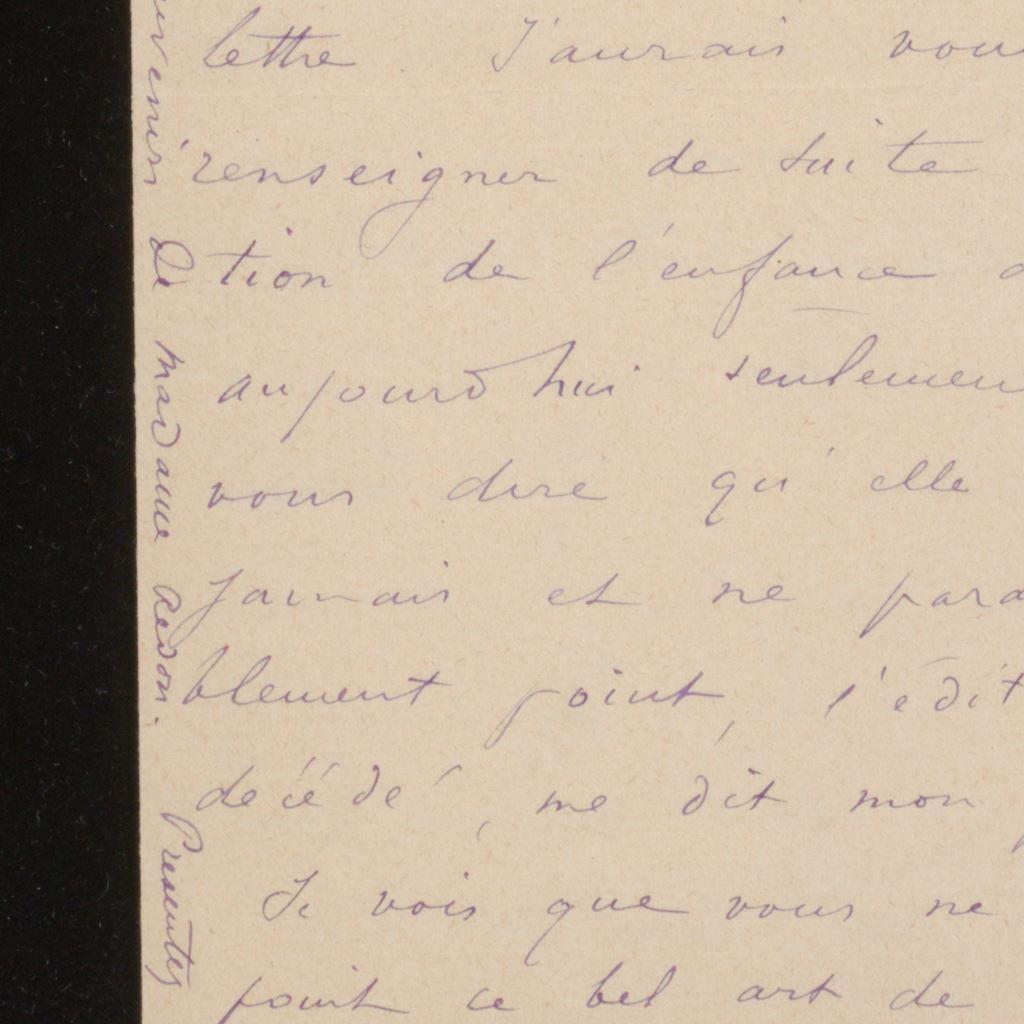 lettre J'aurais vou
renseigner de suite
tion de l'enfance
aujourd'hui seulemen
vous dire qu'elle
jamais et ne para
blement point, l'édit
décédé, me dit mon
Je vois que vous ne
point ce bel art de
de madame Redon. Presentez